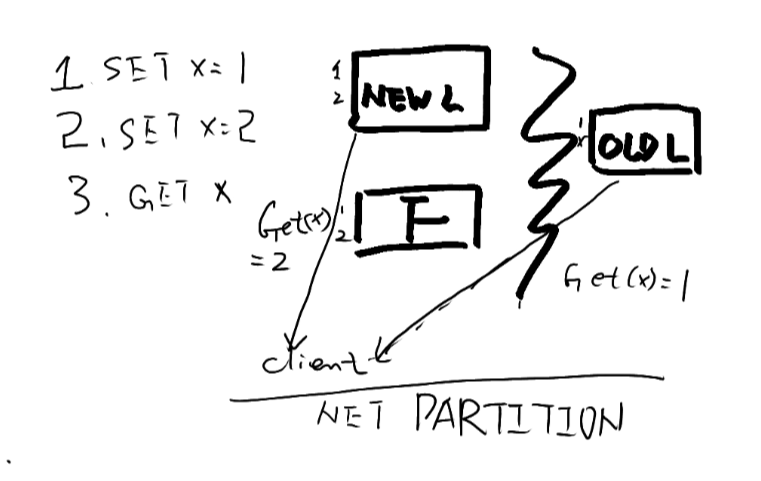 1. SET X=1
2. SET X=2
3. GET X
1
2
NEW L
1
OLD L
Get(x)
=2
1
2
F
Get(x)=1
client
NET PARTITION